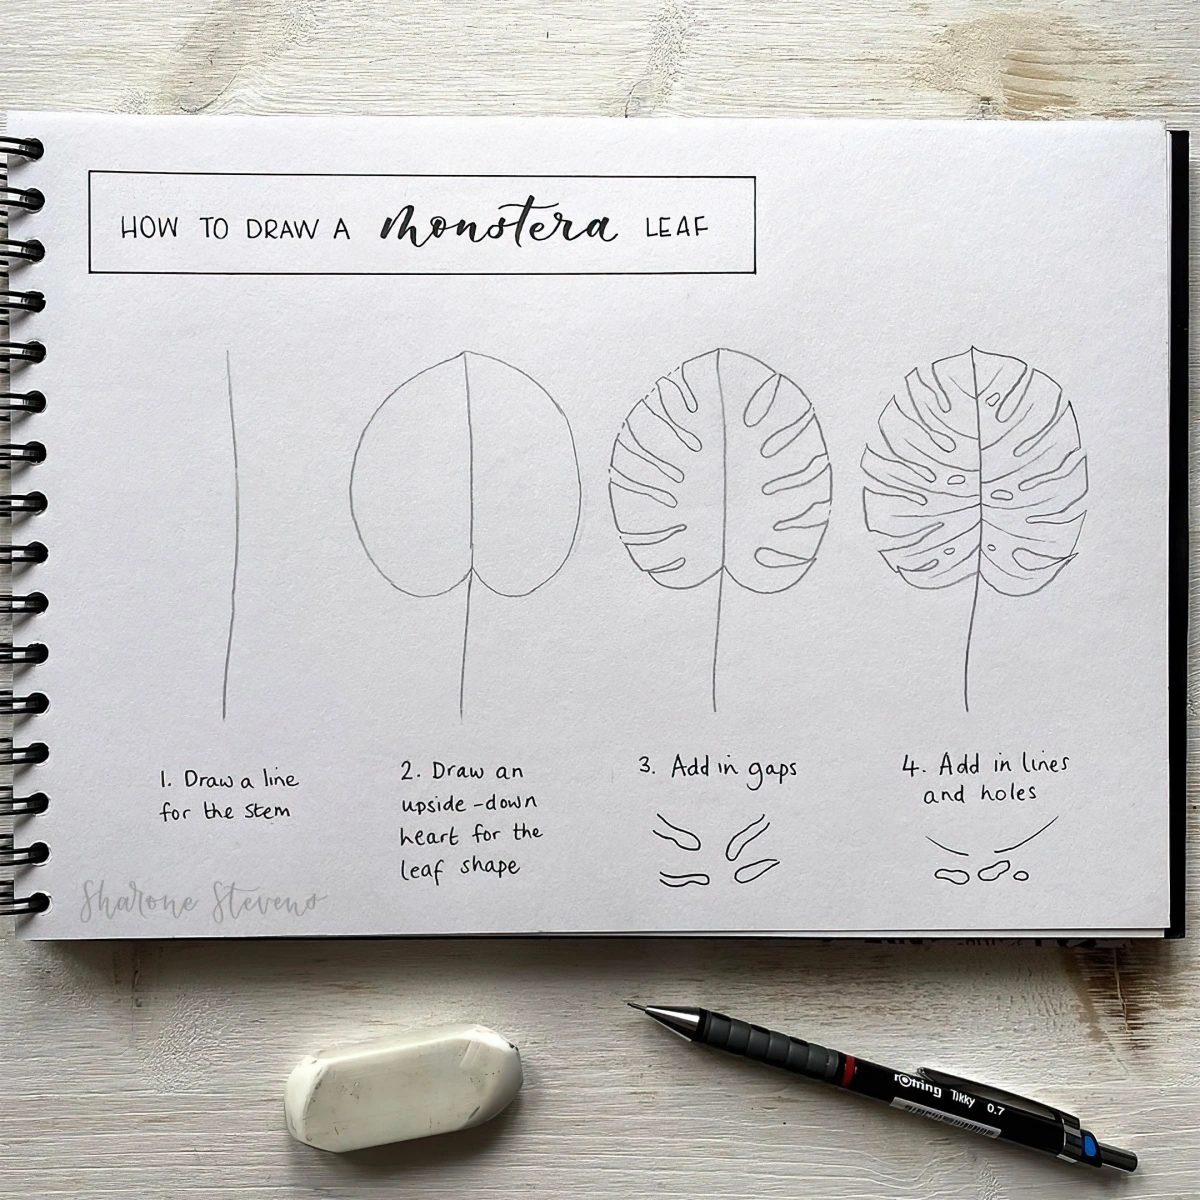 HOW TO DRAW A monstera LEAF
1. Draw a line
for the stem
2. Draw an
upside-down
heart for the
leaf shape
3. Add in gaps
4. Add in lines
and holes
Sharone Stevens
rOtring Tikky 0.7